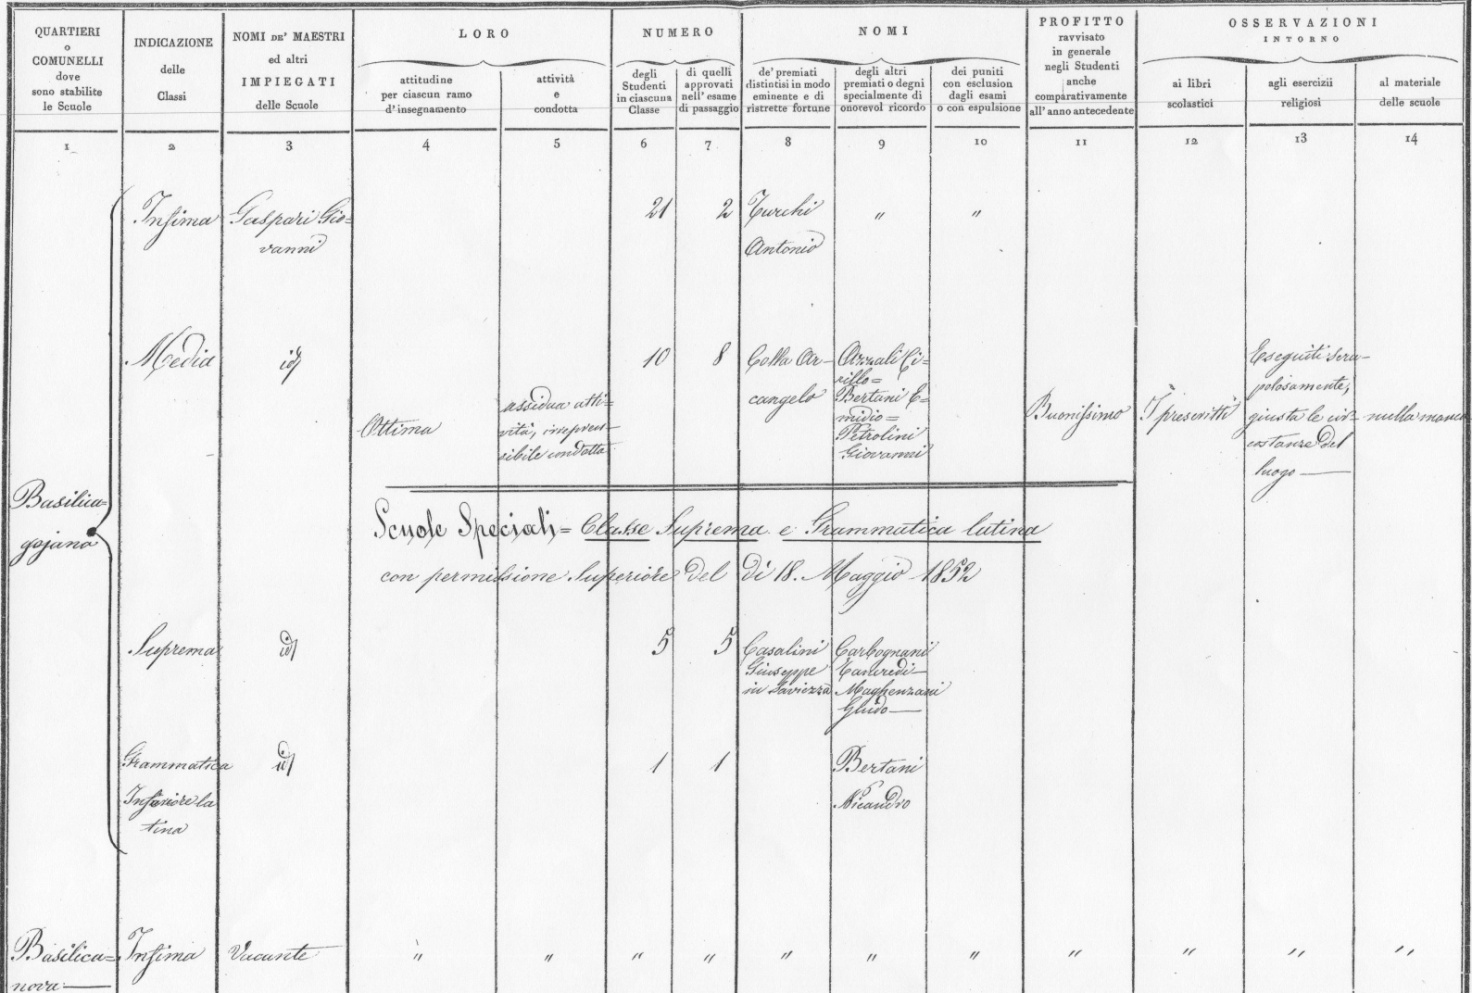 QUARTIERI
o
COMUNELLI
dove
sono stabilite
le Scuole
INDICAZIONE
delle
Classi
NOMI DE' MAESTRI
ed altri
IMPIEGATI
delle Scuole
LORO
attitudine
per ciascun ramo
d'insegnamento
attività
e
condotta
NUMERO
degli
Studenti
in ciascuna
Classe
di quelli
approvati
nell'esame
di passaggio
NOMI
de' premiati
distintisi in modo
eminente e di
ristrette fortune
degli altri
premiati o degni
specialmente di
onorevol ricordo
dei puniti
con esclusion
dagli esami
o con espulsione
PROFITTO
ravvisato
in generale
negli Studenti
anche
comparativamente
all' anno antecedente
OSSERVAZIONI
INTORNO
ai libri
scolastici
agli esercizii
religiosi
al materiale
delle scuole
1 2 3 4 5 6 7 8 9 10 11 12 13 14
Infima Gaspari Gio-
vanni
21 2 Turchi
Antonio
" "
Media id 10 8
Colla Ar-
cangelo
Azzali Ci-
rillo=
Bertani E-
midio=
Petrolini
Giovanni
Ottima
assidua atti-
vità, irrepren-
sibile condotta
Buonissimo
I prescritti
Eseguiti scru-
polosamente,
giusta le cir-
costanze del
luogo
nulla manca
Basilica-
gojano
Scuole Speciali = Classe Suprema e Grammatica latina
con permissione Superiore del dì 18. Maggio 1852
Suprema id 5 5
Casalini
Giuseppe
in Saviezza
Carbognani
Tancredi
Maghenzani
Guido
Grammatica
Inferiore la
tina
id 1 1
Bertani
Nicandro
Basilica=
nova
Infima Vacante " " " " " " " " " " "